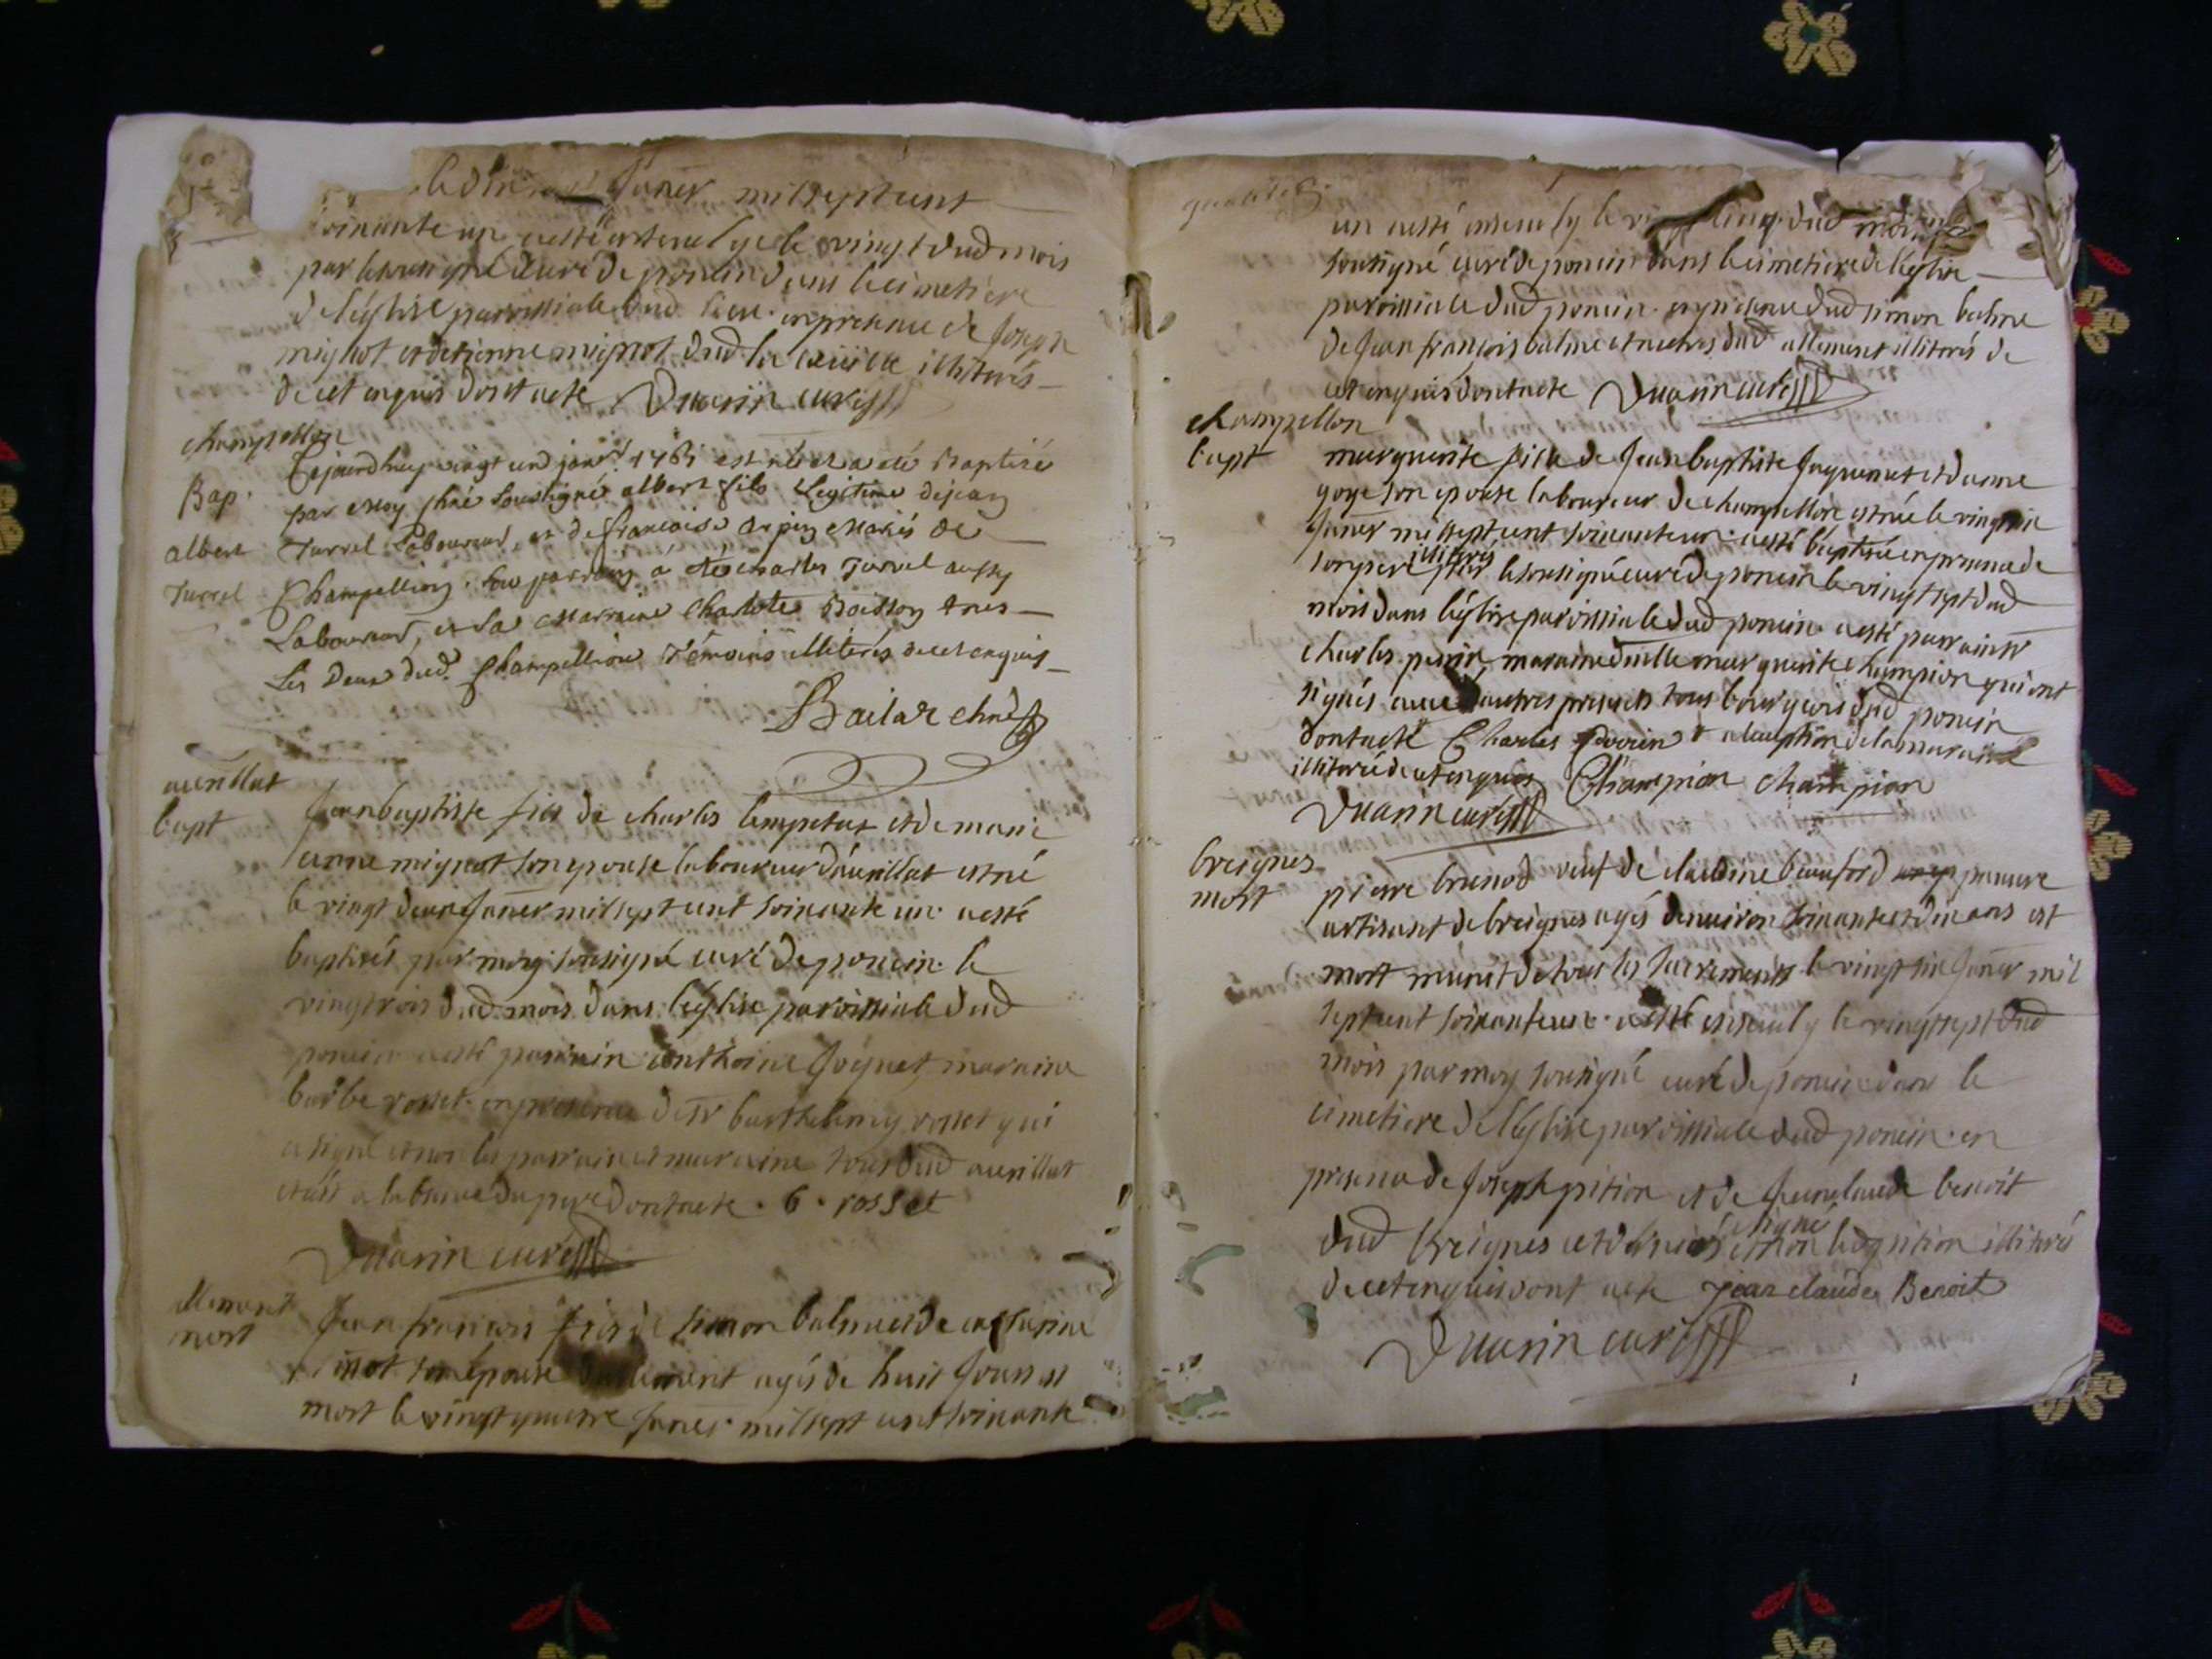 Janer mil sept cent
soixante un a esté ensevelye le vingt dud mois
par le soussigné curé de poncin dans le cimetiere
de l'église parroissiale dud lieu en presence de Joseph
mignot et detienne mignot dud la illiterés
de cet enquis dont acte Duarin curé
champellon
Bap.
albert
Turrel
Cejourdhuy vingt un janv 1761 est né et a été Baptisé
par moy soussigné albert fils Legitime de jean
Turrel Laboureur, et de francoise arpin Mariés de
Champellion. Son parrain á été charles Turrel aussy
Laboureur, et La Marraine Charlote Boisson tous
Les Deux dud. Champellion Témoins illiterés de cet enquis
avrillat
bapt
Jean baptiste fils de charles lempereur et de marie
anne mignot son epouse laboureur d'avrillat est né
le vingt deux Janer mil sept cent soixante un a esté
baptisés par moy soussigné curé de poncin le
vingtrois dud mois dans l'église parroissiale dud
poncin a esté parrain anthoine Joguet, maraine
barbe rosset en presence de sr barthelemy rosset qui
a signé et non les parrain et maraine tous dud avrillat
du pere dont acte . b . rosset
Duarin curé
allemant
mort
Jean francois fils de simon balme et de
son épouse d'allemant agés de huit Jours est
mort le vingt quatre Janer mil sept cent soixante
un a esté ensevely le cinq dud mois
soussigné curé de poncin dans le cimetiere de l'église
parroissiale dud poncin en presence dud simon balme
de Jean francois balme et autres dud allement illiterés de
cet enquis dont acte Duarin curé
champellon
bapt
marguerite fille de Jean baptiste Juguenet et d'anne
goye son epouse laboureur de champellon est née le vingt six
Janer mil sept cent soixante un a esté baptisée en presence de
son pere illiterés par le soussigné curé de poncin le vingt sept dud
mois dans l'église parroissiale dud poncin a esté parrain sr
charles perrin, maraine dmelle marguerite champion qui ont
signés avec autres presents tous bourgeois dud poncin
dont acte Charles Perrin a l'exeption de la maraine
illiterée de cet enquis Champion champion
Duarin curé
breignes
mort
pierre brunod veuf de claudine beauford pauvre
artisant de breignes agés d'environ soixante et dix ans est
mort munit de tous les sacrements le vingt six Janer mil
sept cent soixante un a esté ensevely le vingt sept dud
mois par moy soussigné curé de poncin dans le
cimetiere de l'église parroissiale dud poncin en
presence de Joseph pition et de Jean claude benoit
dud breignes ce dernier a signé et non led pition illiteré
de cet enquis dont acte jean claude Benoit
Duarin curé